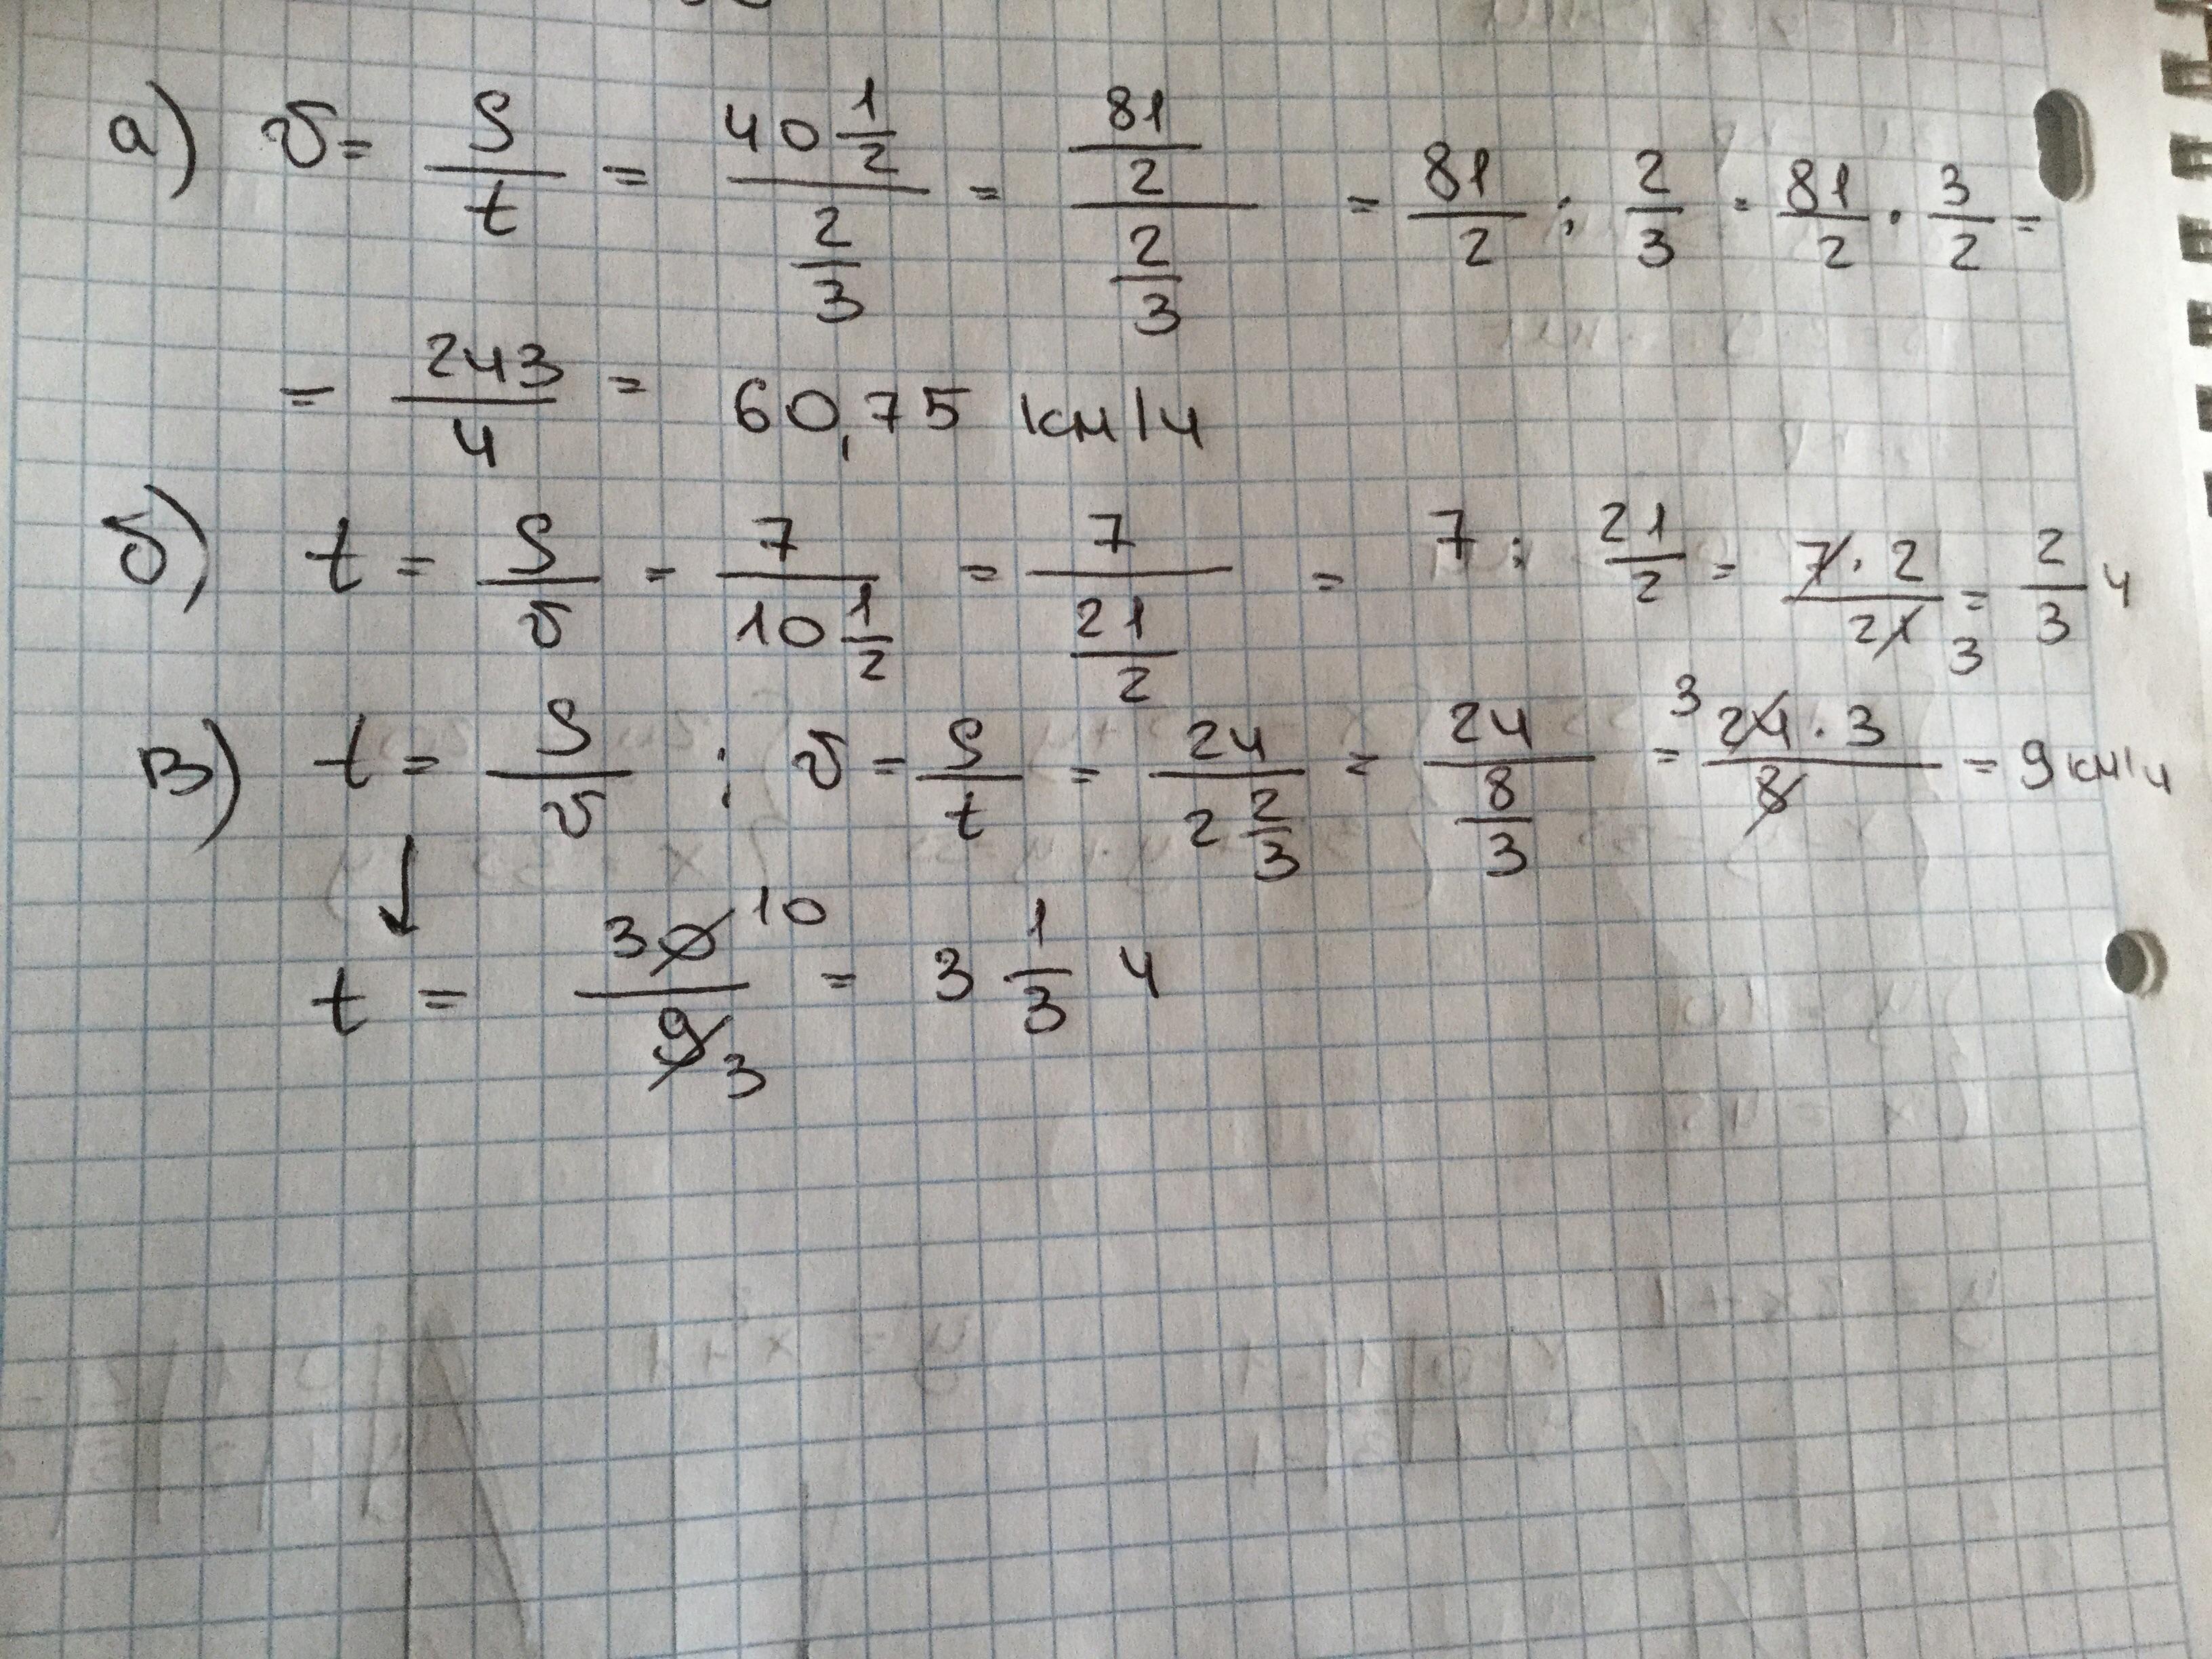 а) v = S/t = 40 1/2 / 2/3 = 81/2 / 2/3 = 81/2 : 2/3 = 81/2 · 3/2 =
= 243/4 = 60,75 км/ч
б) t = S/v = 7 / 10 1/2 = 7 / 21/2 = 7 : 21/2 = 7·2 / 21 3 = 2/3 ч
в) t = S/v ; v = S/t = 24 / 2 2/3 = 24 / 8/3 = 3 24·3 / 8 = 9 км/ч
↓
t = 30 10 / 9 3 = 3 1/3 ч